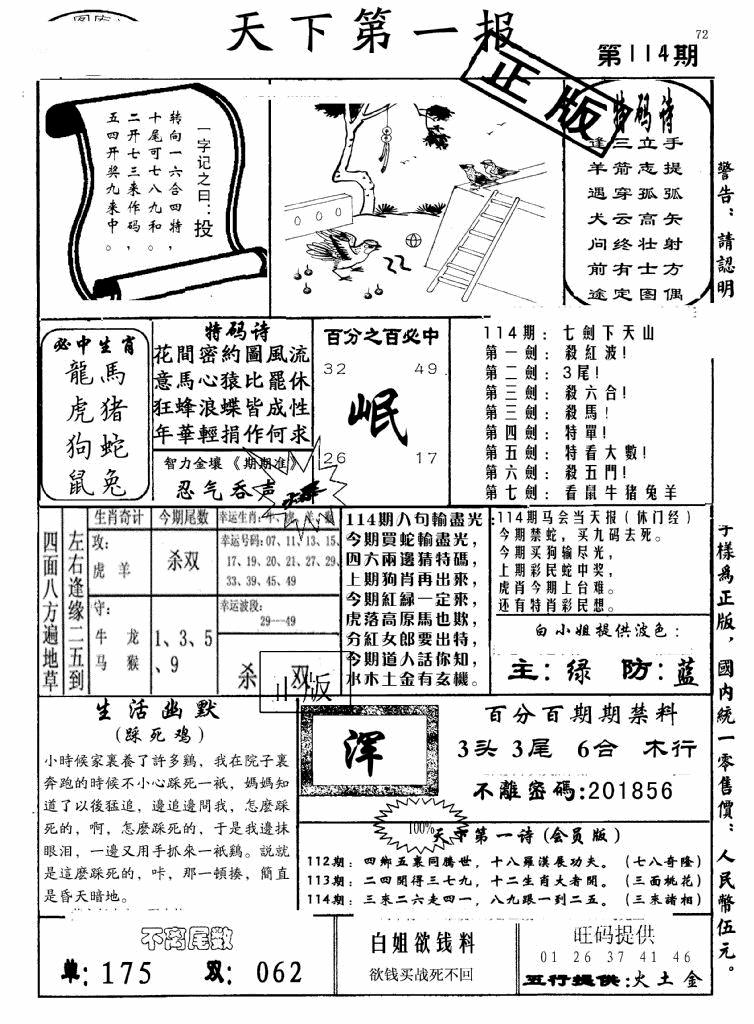 天下第一报
72
第114期
正版
一字记之曰：投
转向一六合四特，
十尾可七八九和。
二开七三来作码，
五四开奖九来中。
特码诗
手提弧矢射方偶
立志孤高壮士图
三箭穿云终有定
逢羊遇犬问前途
警告：請認明
字樣爲正版，國内統一零售價：人民幣伍元。
必中生肖
龍 馬
虎 猪
狗 蛇
鼠 兔
特码诗
花間密約圖風流
意馬心猿比罷休
狂蜂浪蝶皆成性
年華輕捐作何求
智力金壤《期期准》
忍气吞声
百分之百必中
32 49
岷
26 17
114期：七劍下天山
第一劍：殺紅波！
第二劍：3尾！
第三劍：殺六合！
第三劍：殺馬！
第四劍：特單！
第五劍：特看大數！
第六劍：殺五門！
第七劍：看鼠牛猪兔羊
四面八方遍地草
左右逢缘二五到
生肖奇计
攻：
虎 羊
守：
牛 龙
马 猴
今期尾数
杀双
1、3、5
、9
幸运生肖：牛、
幸运号码：07、11、13、15、
17、19、20、21、27、29、
33、39、45、49
幸运波段：
29—49
杀 双
正版
114期八句輸盡光
今期買蛇輸盡光，
四六兩邊猜特碼，
上期狗肖再出來，
今期紅緑一定來，
虎落高原馬也欺，
分紅女郎要出特，
今期道人話你知，
水木土金有玄機。
114期马会当天报（休门经）
今期禁蛇，买九码去死。
今期买狗输尽光，
上期彩民蛇中奖，
虎肖今期上台难。
还有特肖彩民想。
白小姐提供波色：
主：绿 防：蓝
生活幽默
(踩死鸡)
小時候家裏養了許多鷄，我在院子裏
奔跑的時候不小心踩死一衹，媽媽知
道了以後猛追，邊追邊問我，怎麽踩
死的，啊，怎麽踩死的，于是我邊抹
眼泪，一邊又用手抓來一衹鷄。説就
是這麽踩死的，咔，那一頓揍，簡直
是昏天暗地。
浑
百分百期期禁料
3头 3尾 6合 木行
不離密碼:201856
100%
天下第一诗(会员版)
112期：四鄉五裏同騰世，十八羅漢展功夫。（七八奇隆）
113期：二四開得三七九，十二生肖大者開。（三面桃花）
114期：三來二六走四一，八九跟一到二五。（三來諸相）
不离尾数
单: 175 双: 062
白姐欲钱料
欲钱买战死不回
旺码提供
01 26 37 41 46
五行提供:火土金